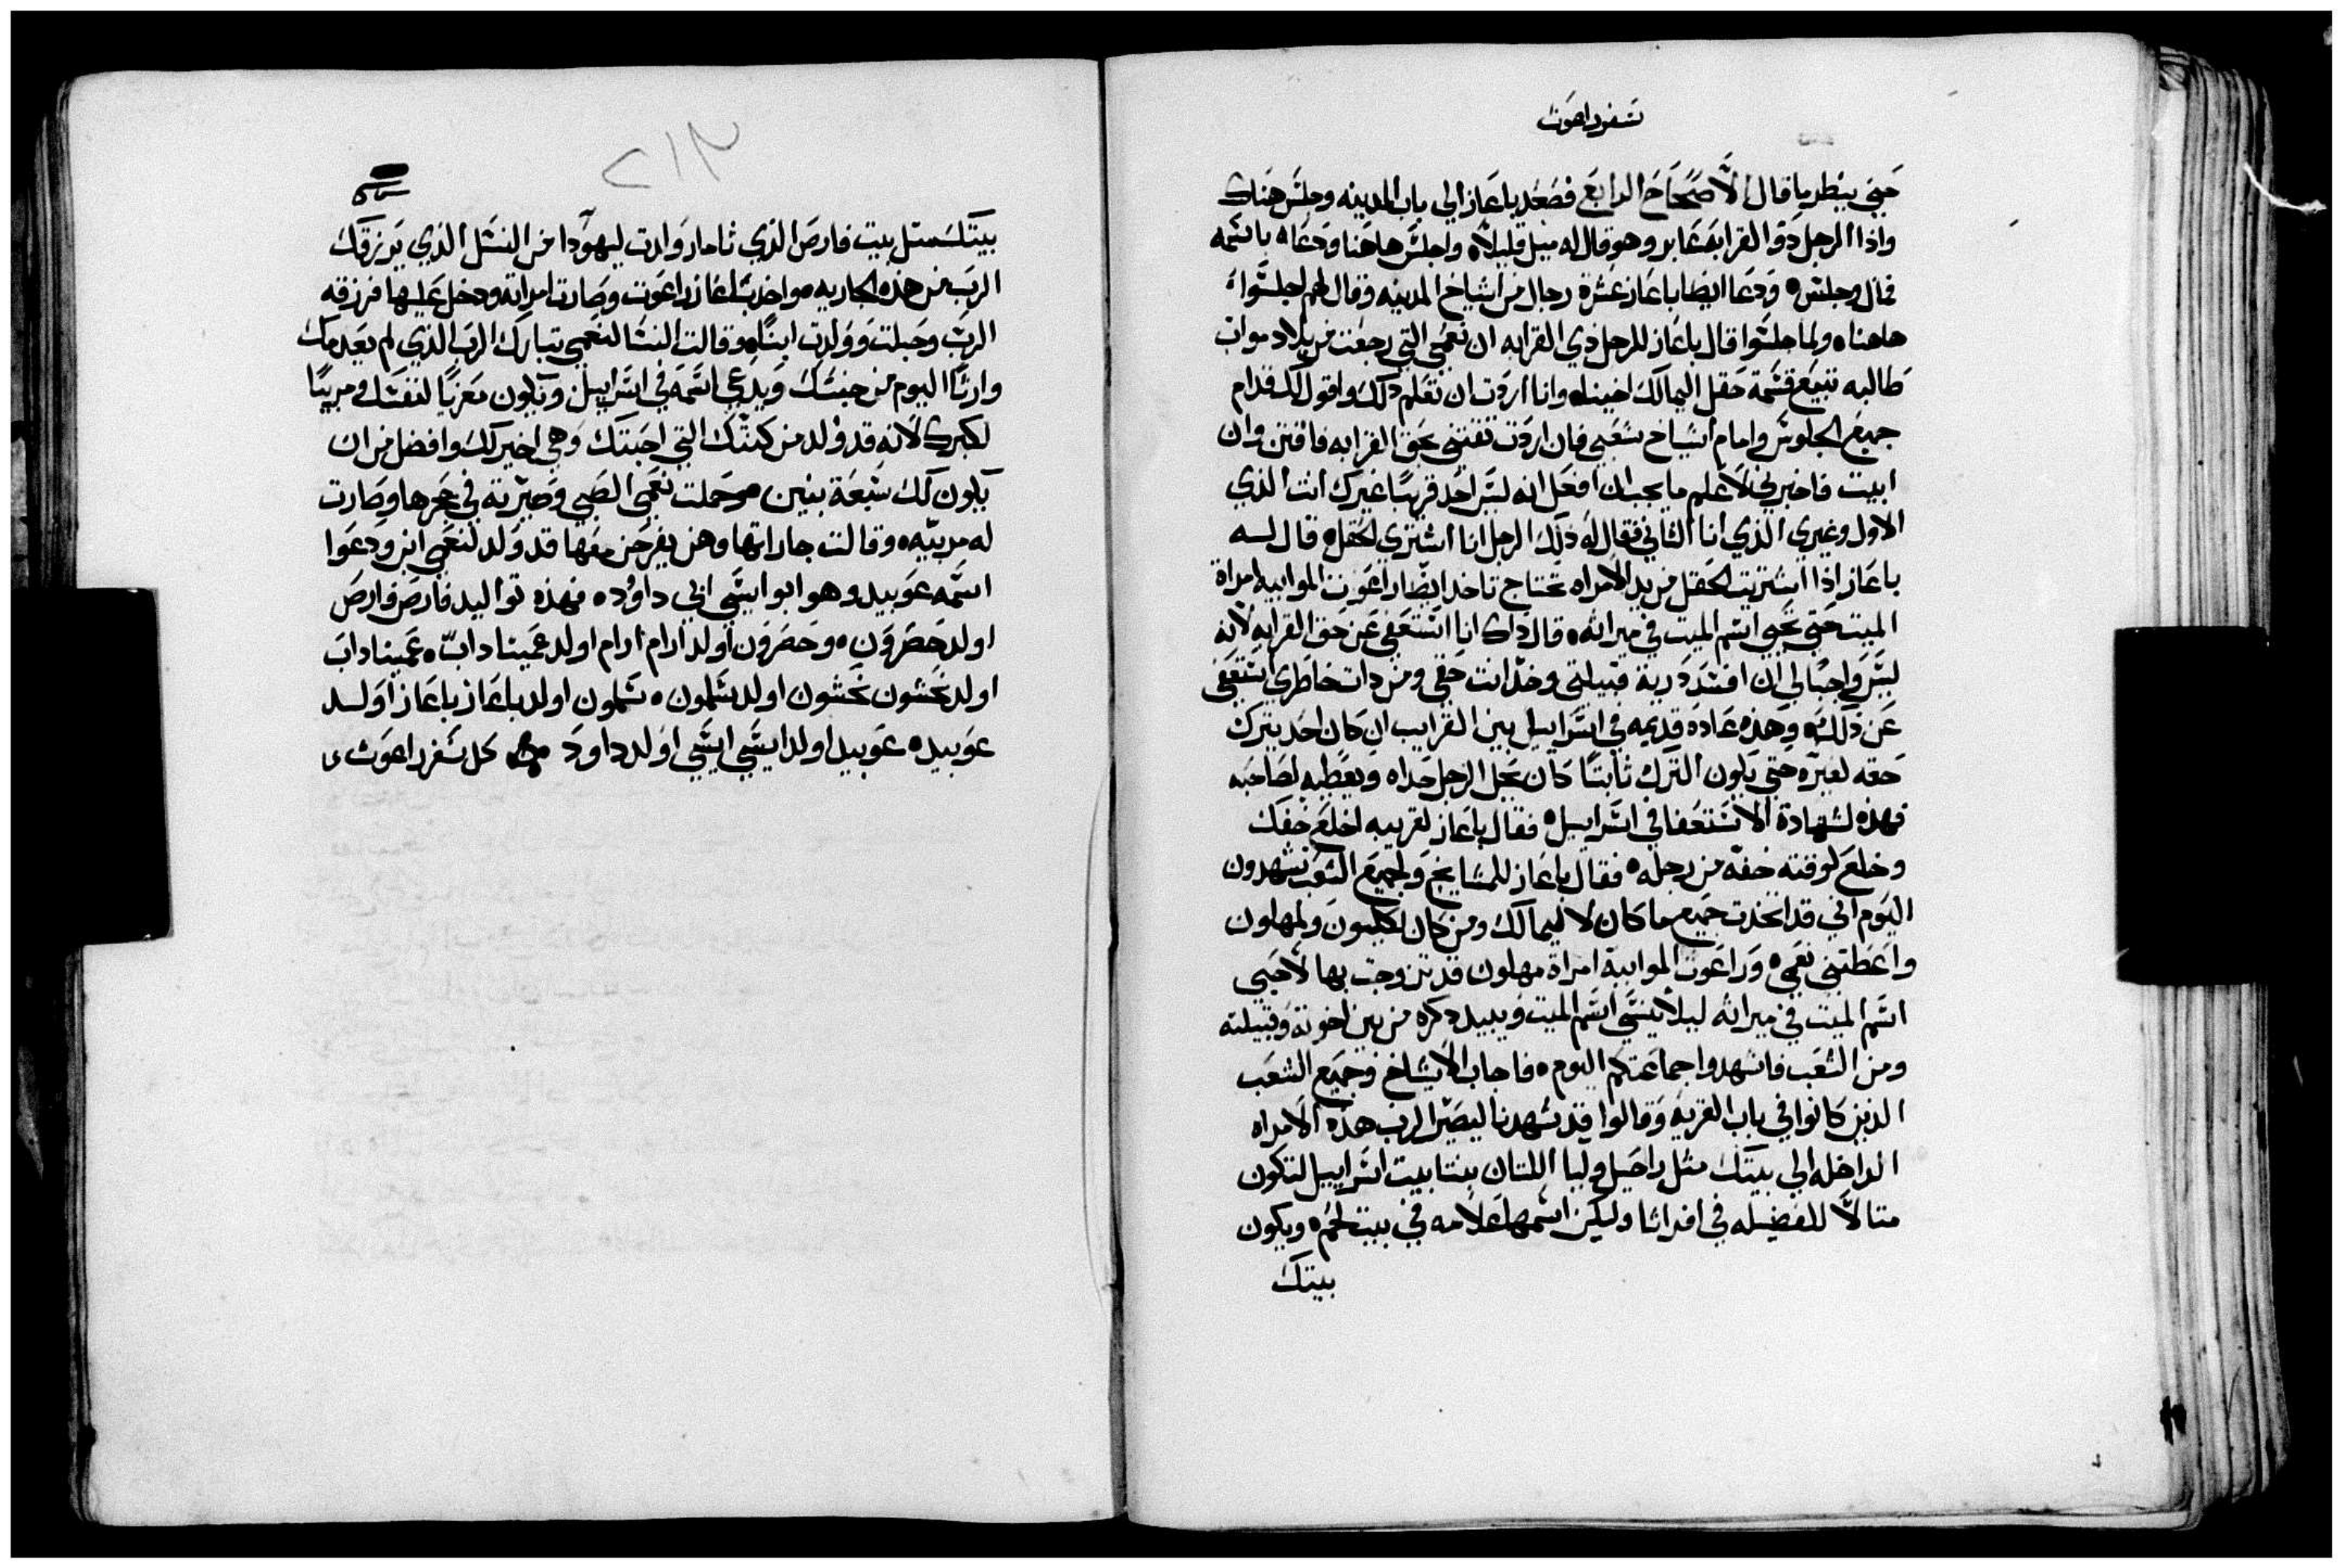 سفر راعوث
حتي ينظر ما قال الاصحاح الرابع فصعد باعاز الي باب المدينه وجلس هناك
واذا الرجل ذو القرابه عابر وهو قال له ميل قليلاً واجلس هاهنا ودعاه باسمه
فمال وجلس ودعا ايضا باعاز عشرة رجال من اشياخ المدينه وقال لهم اجلسوا
هاهنا ولما جلسوا قال باعاز للرجل ذي القرابه ان نعمي التي رجعت من بلاد مواب
طالبه تبيع قسمة حقل اليمالك اخينا وانا اردت ان تعلم ذلك واقول لك قدام
جميع الجلوس وامام اشياخ شعبي فان اردت تقتني بحق القرابه فاقتن وان
ابيت فاخبرني لاعلم ما يجب ان افعل انه ليس احد قريبًا غيرك انت الذي
الاول وغيري الذي انا الثاني فقال له ذلك الرجل انا اشتري الحقل قال لسه
باعاز اذا اشتريت الحقل من يد الامراه تحتاج تاخد ايضا راعوت الموابيه امراة
الميت حتي تحيي اسم الميت في ميراثه قال ذاك انا استعفي عن حق القرابه لانه
ليس واجبًا لي ان افسد درية قبيلتي وخذ انت حقي ومن ذات خاطري استعفي
عن ذلك وهذه عاده قديمه في اسراييل بين القرايب ان كان احد يترك
حقه لغيره حتي يكون الترك ثابتًا كان يحل الرجل حداه ويعطيه لصاحبه
فهذه لشهادة الاستعفا في اسراييل فقال باعاز لقريبه اخلع خفك
وخلع لوقته خفه من رجله فقال باعاز للمشايخ ولجميع الشعب تشهدون
اليوم اني قد اتخدت جميع ما كان لاليمالك ومن كان لكليون ولمهلون
واعطتني نعمي وراعوت الموابية امراة مهلون قد تزوجت بها لاحيي
اسم الميت في ميراثه ليلا ينسي اسم الميت ويبيد دكره من بين اخوته وقبيلته
ومن الشعب فاشهدوا جماعتكم اليوم فاجاب الاشياخ وجميع الشعب
الذين كانوا في باب القريه وقالوا قد شهدنا ليصير الرب هذه الامراه
الداخله الي بيتك مثل راحيل وليا اللتان بنتا بيت اسراييل لتكون
متالاً للفضيله في افراثا وليكن اسمها علامه في بيت لحم ويكون
بيتك
بيتك متل بيت فارص الذي ثامار ولدت ليهودا من النسل الذي يرزقك
الرب من هذه الجاريه واخد باعاز راعوت وصارت امراته ودخل عليها فرزقه
الرب وحبلت وولدت ابنًا وقالت النسا لنعمي تبارك الرب الذي لم يعدمك
وارثًا اليوم من جنسك ويدعي اسمه في اسراييل ويكون معزيًا لنفسك ومربيًا
لكبرك لانه قد ولد من كنتك التي احبتك وهي اخير لك وافضل من ان
يكون لك سبعة بنين وحملت نعمي الصبي وصيرته في حجرها وصارت
له مربيه وقالت جاراتها وهن يفرحن معها قد ولد لنعمي ابن ودعوا
اسمه عوبيد وهو ابو ايسي ابي داوُد فهذه تواليد فارص فارص
اولد حصرون وحصرون اولد ارام ارام اولد عميناداب عميناداب
اولد نحشون نحشون اولد سلمون سلمون اولد باعاز باعاز اولسد
عوبيد عوبيد اولد ايسي ايسي اولد داود كمل سفر راعوث